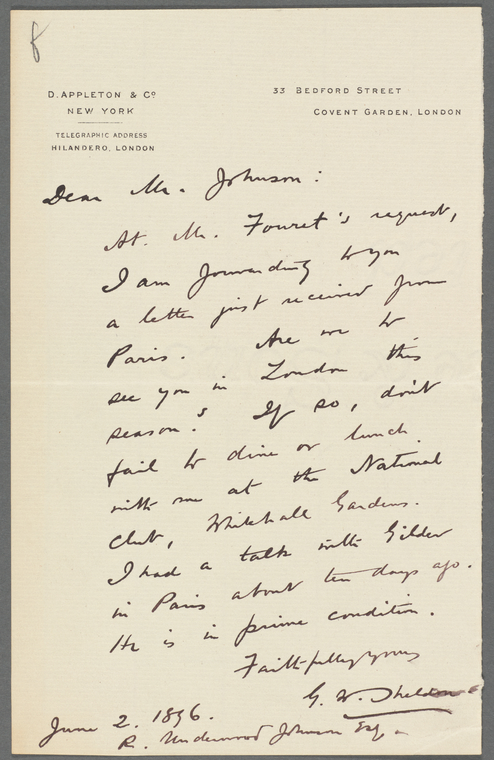 8
D. APPLETON & Co
NEW YORK
TELEGRAPHIC ADDRESS
HILANDERO, LONDON
33 BEDFORD STREET
COVENT GARDEN, LONDON
Dear Mr. Johnson:
At Mr. Fouret's request,
I am forwarding to you
a letter just received from
Paris. Are we to
see you in London this
season? If so, don't
fail to dine or lunch
with me at the National
Club, Whitehall Gardens.
I had a talk with Gilder
in Paris about ten days ago.
He is in prime condition.
Faithfully yours
G. W. Sheldon
June 2. 1896.
R. Underwood Johnson Esq.